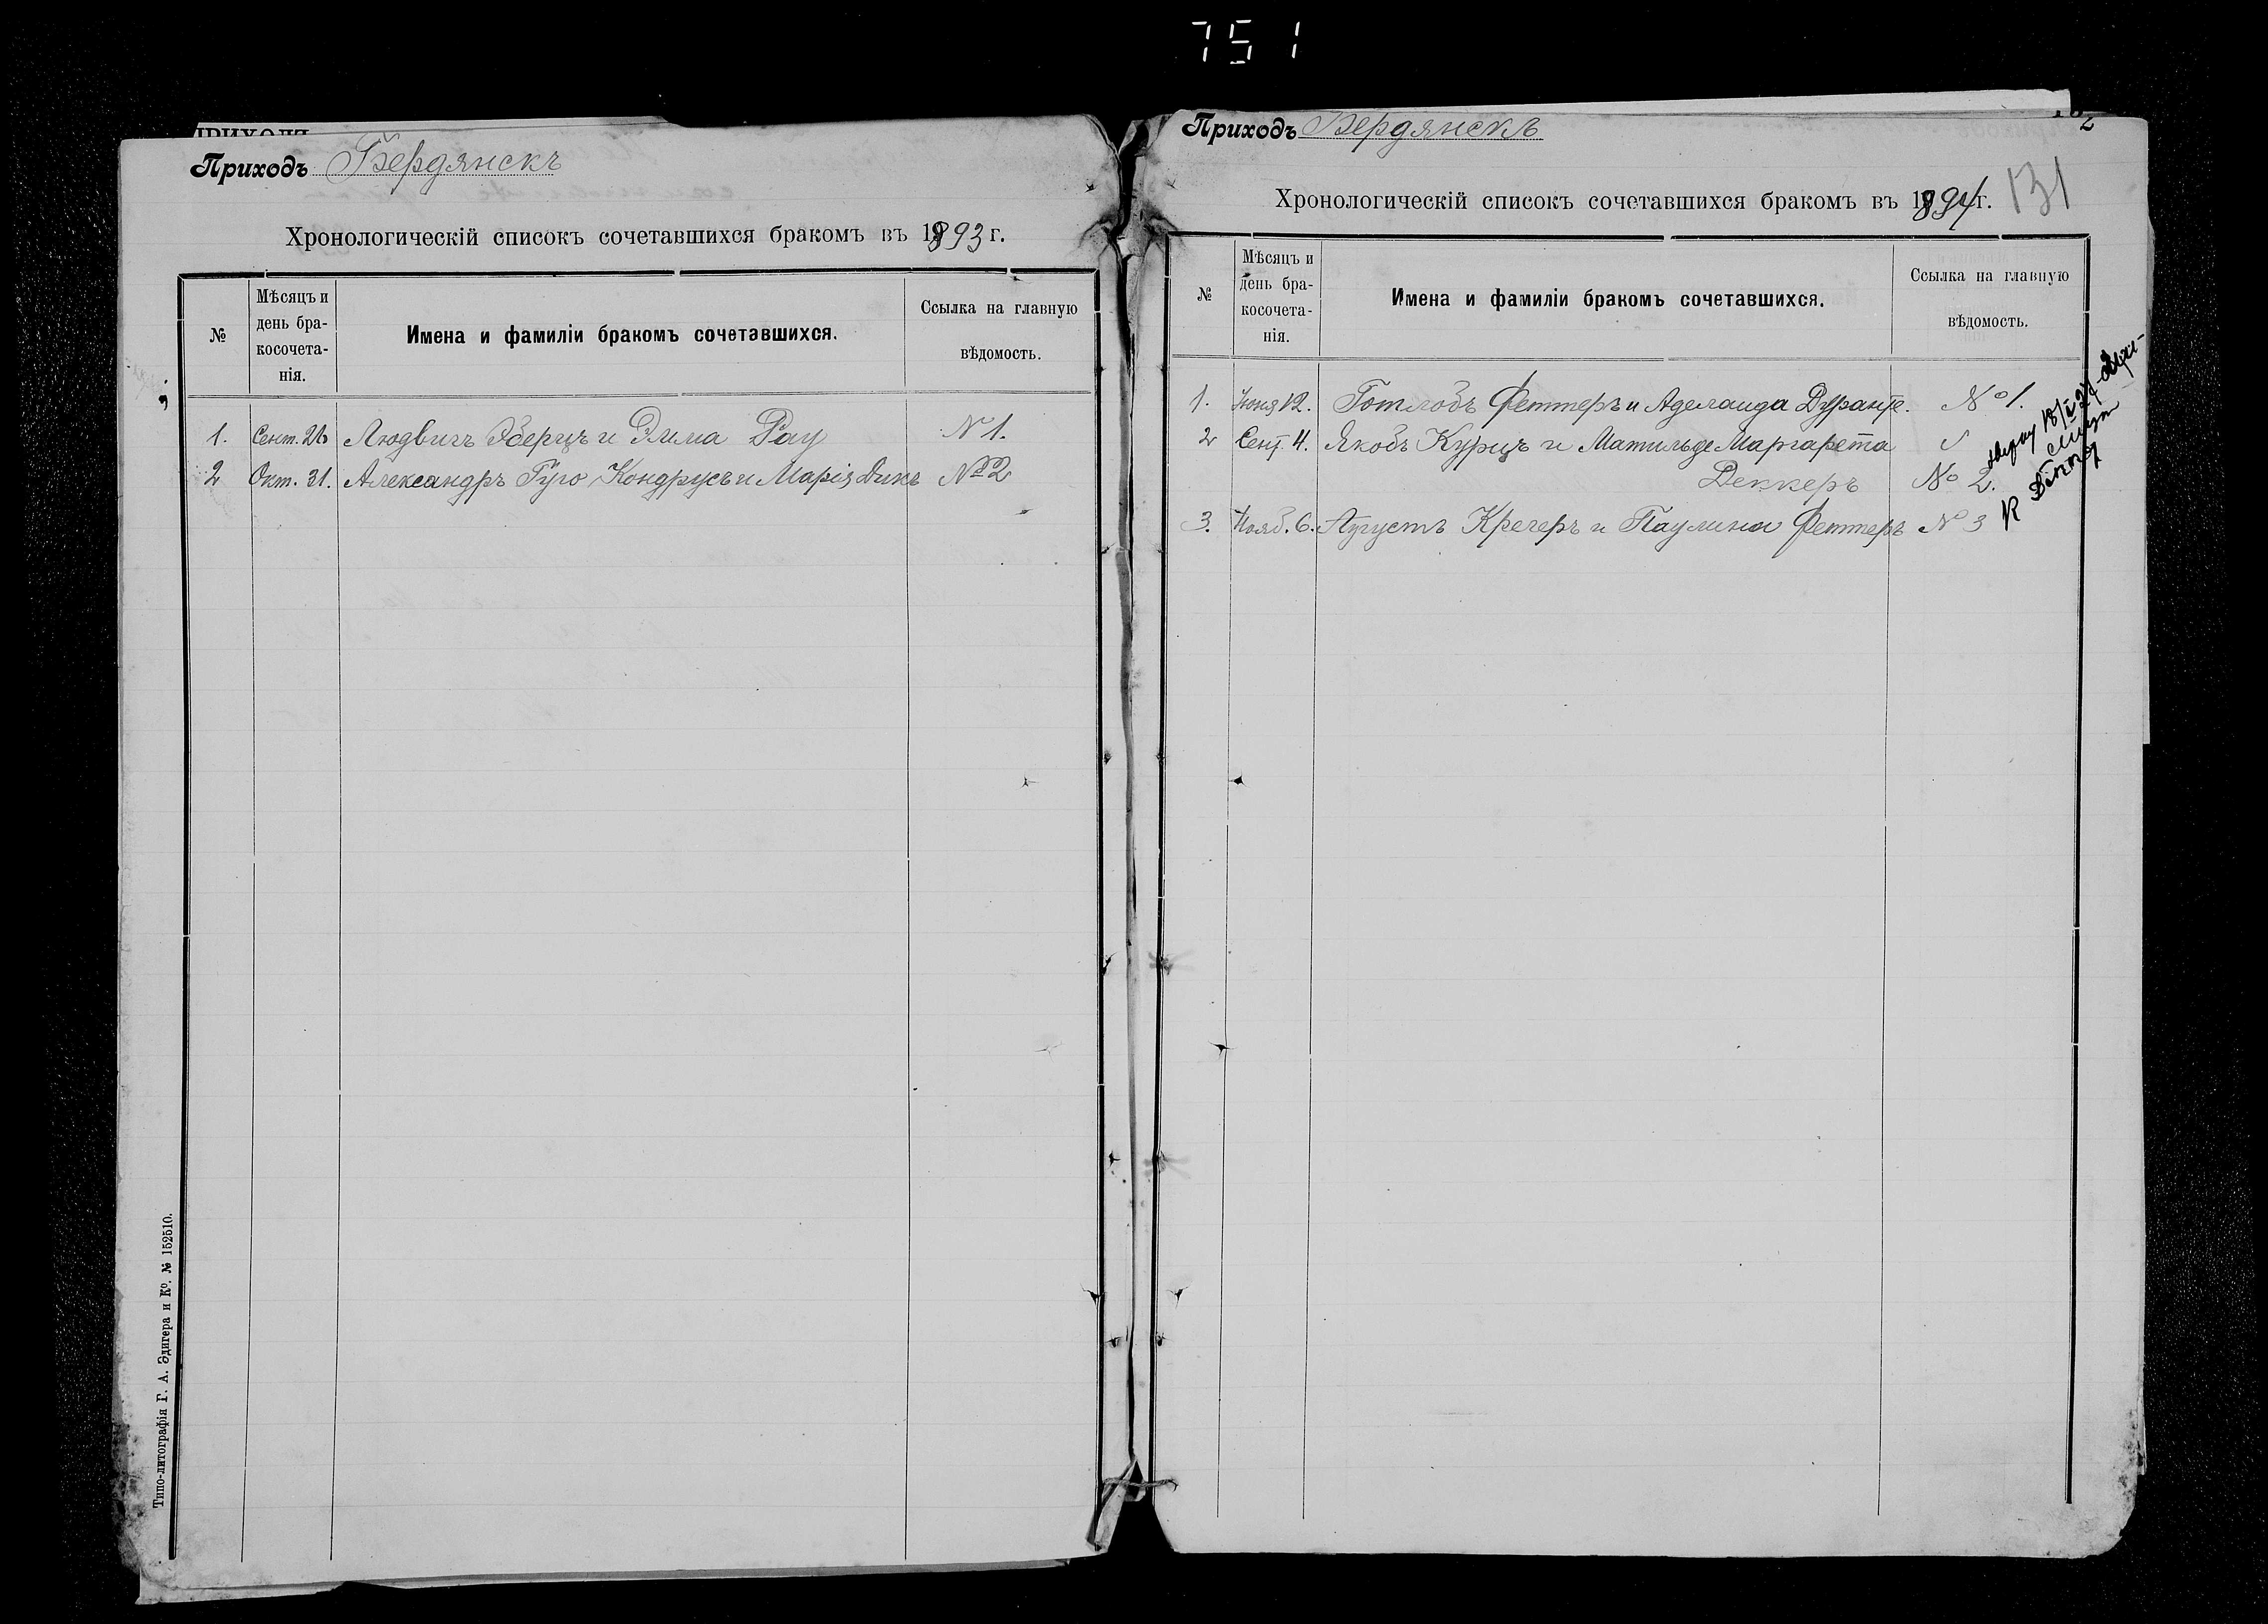 751
Приходъ Бердянскъ
Хронологическій списокъ сочетавшихся бракомъ въ 1893 г.
№
Мѣсяцъ и день бракосочета-нія.
Имена и фамиліи бракомъ сочетавшихся.
Ссылка на главную вѣдомость.
1. Сент. 26 Людвигъ Эберцъ и Эмма Рау № 1.
2 Окт. 31. Александръ Гуго Кондрусъ и Марія Дикъ № 2
Типо-литографія Г. А. Эдигера и Ко. № 152510.
Приходъ Бердянскъ
131
Хронологическій списокъ сочетавшихся бракомъ въ 1894 г.
№
Мѣсяцъ и день бракосочета-нія.
Имена и фамиліи бракомъ сочетавшихся.
Ссылка на главную вѣдомость.
1. Іюня 12. Готлобъ Феттеръ и Аделаида Дуранте. № 1.
2 Сент. 4. Якобъ Курцъ и Матильде Маргарета
Деккеръ № 2.
3. Нояб. 6. Августъ Крегеръ и Паулина Феттеръ № 3